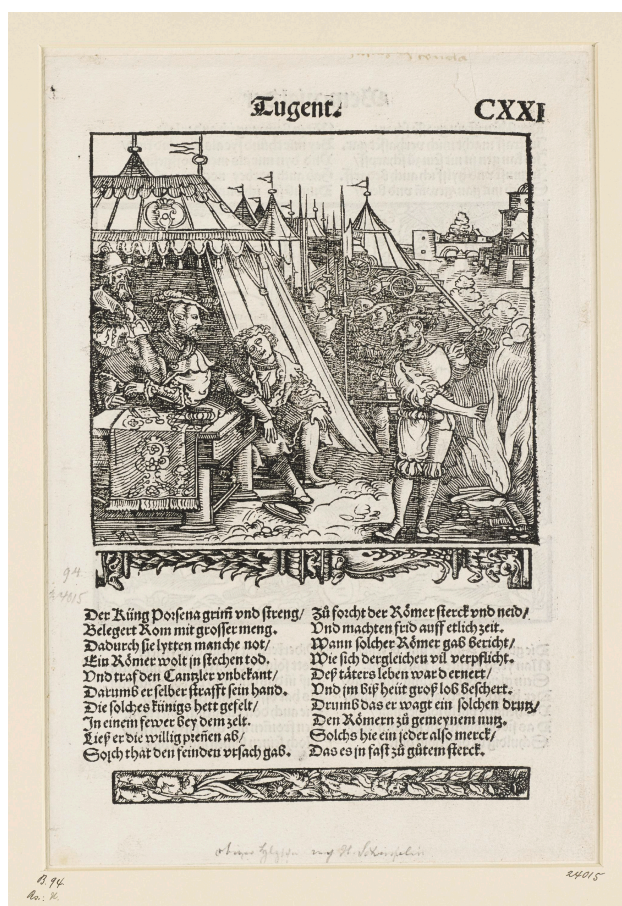 Tugent.
CXXI
Der Küng Porsena grim̃ vnd streng/
Belegert Rom mit grosser meng.
Dadurch sie lytten manche not/
Ein Römer wolt in stechen tod.
Vnd traf den Cantzler vnbekant/
Darumb er selber strafft sein hand.
Die solches künigs hett gefelt/
In einem fewer bey dem zelt.
Ließ er die willig preñen ab/
Solch that den feinden vrsach gab.
Zů forcht der Römer sterck vnd neid/
Vnd machten frid auff etlich zeit.
Wann solcher Römer gab bericht/
Wie sich dergleichen vil verpflicht.
Deß täters leben ward ernert/
Vnd jm biß heüt groß lob beschert.
Drumb das er wagt ein solchen
Den Römern zů gemeynem nutz.
Solchs hie ein jeder also merck/
Das es jn fast zů gůtem sterck.
94
24015
B. 94.
24015